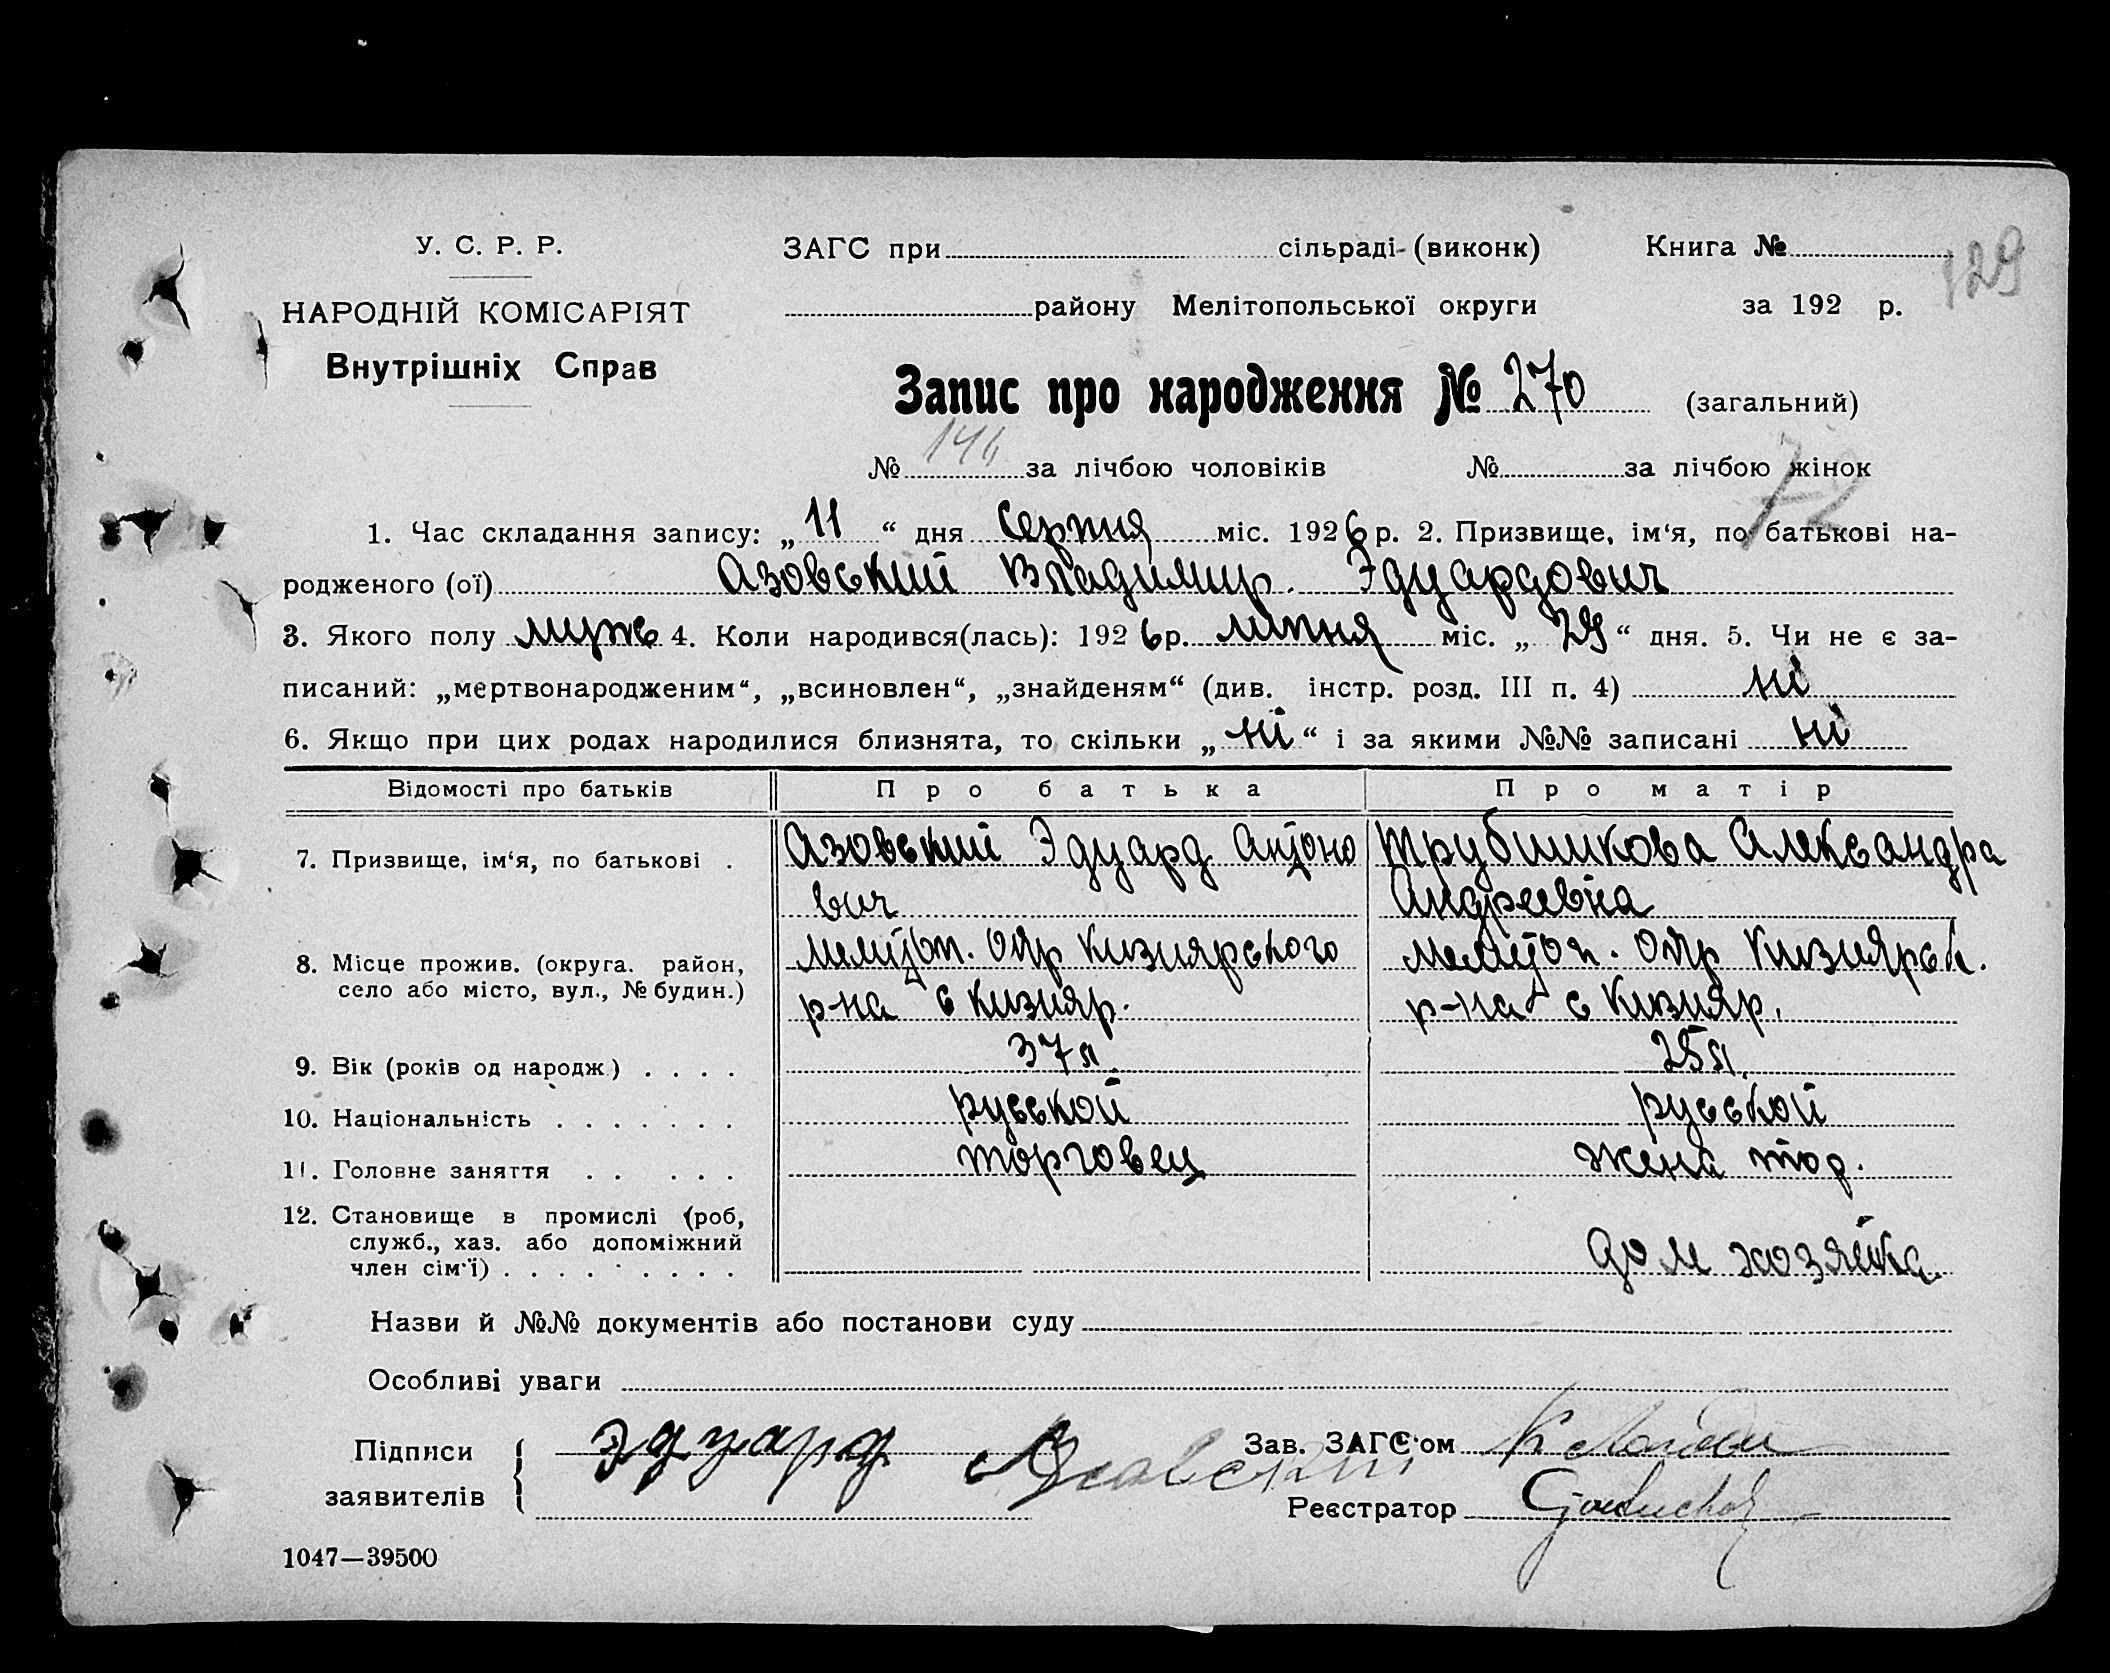 У. С. Р. Р.
НАРОДНІЙ КОМІСАРІЯТ
Внутрішніх Справ
ЗАГС при сільраді (виконк) Книга №
129
району Мелітопольської округи за 192 р.
Запис про народження № 270 (загальний)
№ 146 за лічбою чоловіків № за лічбою жінок
72
1. Час складання запису: „ 11 “ дня Серпня міс. 1926 р. 2. Призвище, ім‘я, по батькові на-
родженого (ої) Азовський Владимир Эдуардович
3. Якого полу муж 4. Коли народився(лась): 1926 р. липня міс. „ 29 “ дня. 5. Чи не є за-
писаний: „мертвонародженим“, „всиновлен“, „знайденям“ (див. інстр. розд. III п. 4) ні
6. Якщо при цих родах народилися близнята, то скільки „ ні “ і за якими №№ записані ні
Відомості про батьків Про батька Про матір
7. Призвище, ім‘я, по батькові . Азовський Эдуард Антоно Трубшикова Александра
вич Андреевна
8. Місце прожив. (округа. район, Меліт. Окр Кизиярского Меліт. Окр Кизиярск.
село або місто, вул., № будин.) р-на с Кизияр. р-на с Кизияр.
9. Вік (років од народж) . . . . 37 л. 25 л.
10. Національність . . . . . . . русской русской
11. Головне заняття . . . . . торговец жена тор.
12. Становище в промислі (роб,
служб., хаз. або допоміжний
член сім‘ї) . . . . . . . . . дом хозяйка
Назви й №№ документів або постанови суду
Особливі уваги
Підписи Эдуард Азовский Зав. ЗАГС‘ом
заявителів Реєстратор
1047—39500